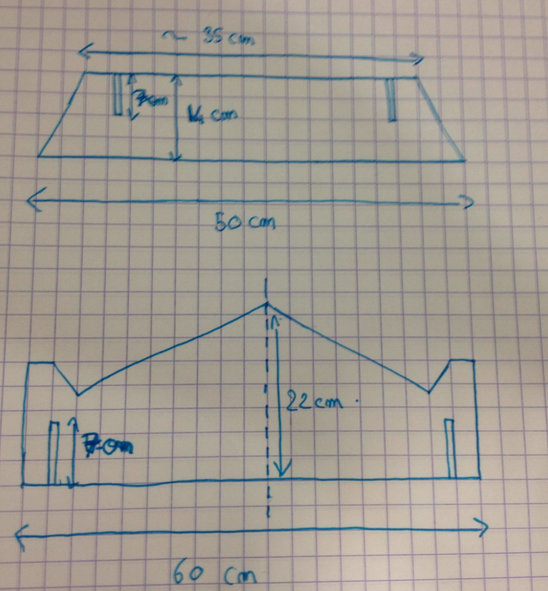 ~ 35 cm
7cm
50 cm
22cm.
7cm
60 cm